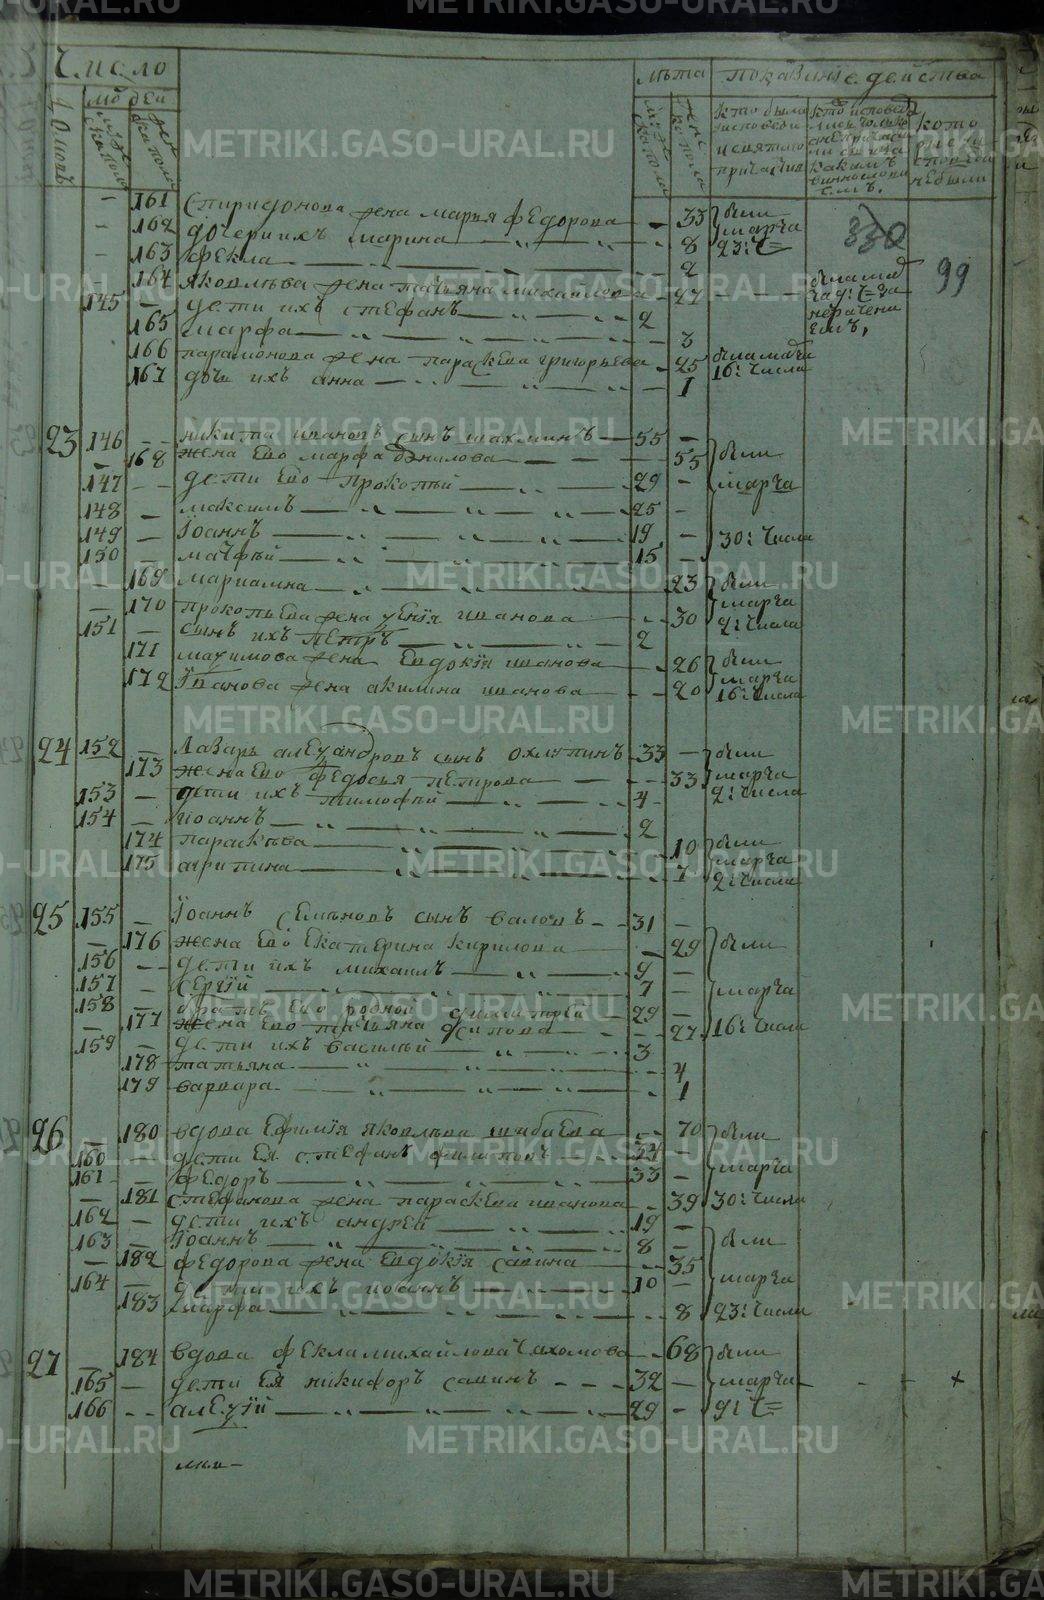 Число
Лѣта показание действа
домовъ мужеска полу женска полу
мужеска полу женска пола
кто были исповеди и святаго причастия
которые исповеди не были
161 Спиридонова жена Марья Федорова 33 были
162 дочери ихъ Марина 8 марта
163 Фекла 2 23: ч
330
99
164 Яковлева жена Татьяна Михайлова 27
145 дети ихъ Стефанъ 2
165 Марфа 3
166 Парамонова жена Параскева Григорьева 25
167 дочь ихъ Анна 1 16: числа
23 146 Никита Ивановъ сынъ Шахминъ 55
168 жена ево Марфа Данилова 55 были
147 дети ево Прокопий 29 марта
148 Максимъ 25
149 Иоаннъ 19 30: числа
150 Матфей 15
169 Мариамна 23 были
170 Прокопьева жена Ксения Иванова 30 марта
151 сынъ ихъ Петръ 2 2: числа
171 Максимова жена Евдокия Иванова 26 были
172 Иванова жена Акилина Иванова 20 марта 16: числа
24 152 Лазарь Александровъ сынъ Охлупинъ 33 были
173 жена ево Федосья Петрова 33 марта
153 дети ихъ Тимофей 4 2: числа
154 Иоаннъ 2
174 Параскева 10 были
175 Агрипина 7 марта 2: числа
25 155 Иоаннъ Семеновъ сынъ Валовъ 31
176 жена ево Екатерина Кирилова 29 были
156 дети ихъ Михаилъ 9
157 Сергий 7 марта
158 братъ ево родной Димитрей 29
177 жена ево Татьяна Осипова 27 16: числа
159 дети ихъ Василей 3
178 Татьяна 4
179 Варвара 1
26 180 вдова Ефимия Яковлева Шабаева 70 были
160 дети ея Стефанъ Филиповъ 34
161 Федоръ 33 марта
181 Стефанова жена Параскева Иванова 39 30: числа
162 дети ихъ Андрей 19
163 Иоаннъ 8 были
182 Федорова жена Евдокия Савина 35
164 дети ихъ Иоаннъ 10 марта
183 Марфа 8 23: числа
27 184 вдова Фекла Михайлова Чахомова 68 были
165 дети ея Никифоръ Савинъ 32 марта
166 Алексий 29 9: ч